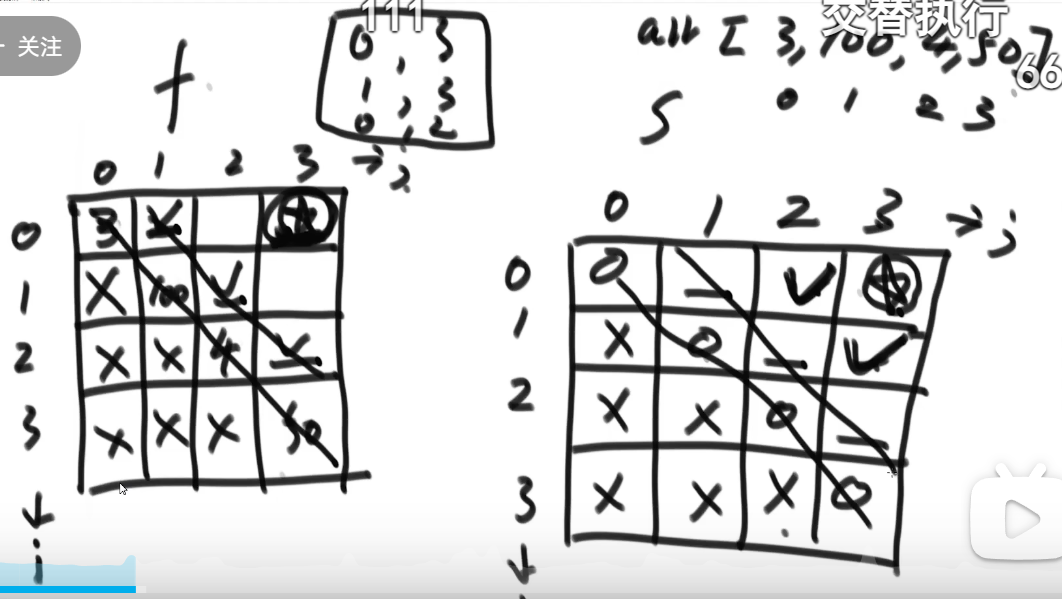 关注
111
交替执行
66
f
0, 3
1, 3
0, 2
arr [3, 100, 4, 50]
0 1 2 3
S
0 1 2 3 → j
0 3
1 X 100
2 X X 4
3 X X X 50
↓
i
0 1 2 3 → j
0 0 – ✓
1 X 0 – ✓
2 X X 0 –
3 X X X 0
↓